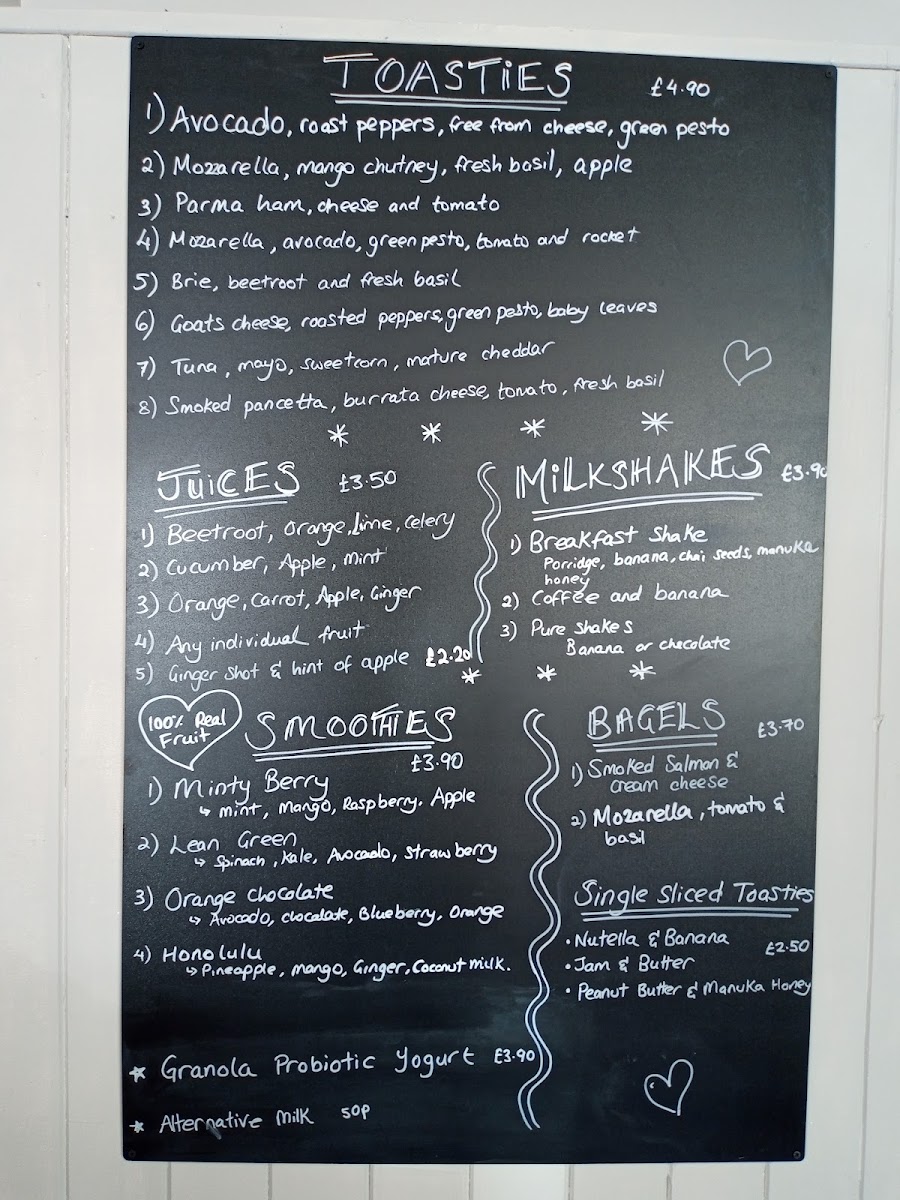 TOASTIES £4.90
1) Avocado, roast peppers, free from cheese, green pesto
2) Mozzarella, mango chutney, fresh basil, apple
3) Parma ham, cheese and tomato
4) Mozarella, avocado, green pesto, tomato and rocket
5) Brie, beetroot and fresh basil
6) Goats cheese, roasted peppers, green pesto, baby leaves
7) Tuna, mayo, sweetcorn, mature cheddar
8) Smoked pancetta, burrata cheese, tomato, fresh basil
JUICES £3.50
1) Beetroot, Orange, Lime, celery
2) Cucumber, Apple, Mint
3) Orange, Carrot, Apple, Ginger
4) Any individual fruit
5) Ginger shot & hint of apple £2.20
MILKSHAKES £3.90
1) Breakfast Shake
Porridge, banana, chai seeds, manuka
honey
2) Coffee and banana
3) Pure shakes
Banana or chocolate
100% Real
Fruit
SMOOTHIES
£3.90
1) Minty Berry
↳ mint, Mango, Raspberry, Apple
2) Lean Green
↳ Spinach, Kale, Avocado, Strawberry
3) Orange chocolate
↳ Avocado, chocolate, Blueberry, Orange
4) Honolulu
↳ Pineapple, mango, Ginger, Coconut milk.
BAGELS £3.70
1) Smoked Salmon &
cream cheese
2) Mozarella, tomato &
basil
Single Sliced Toasties
• Nutella & Banana £2.50
• Jam & Butter
• Peanut Butter & Manuka Honey
* Granola Probiotic Yogurt £3.90
* Alternative Milk 50p